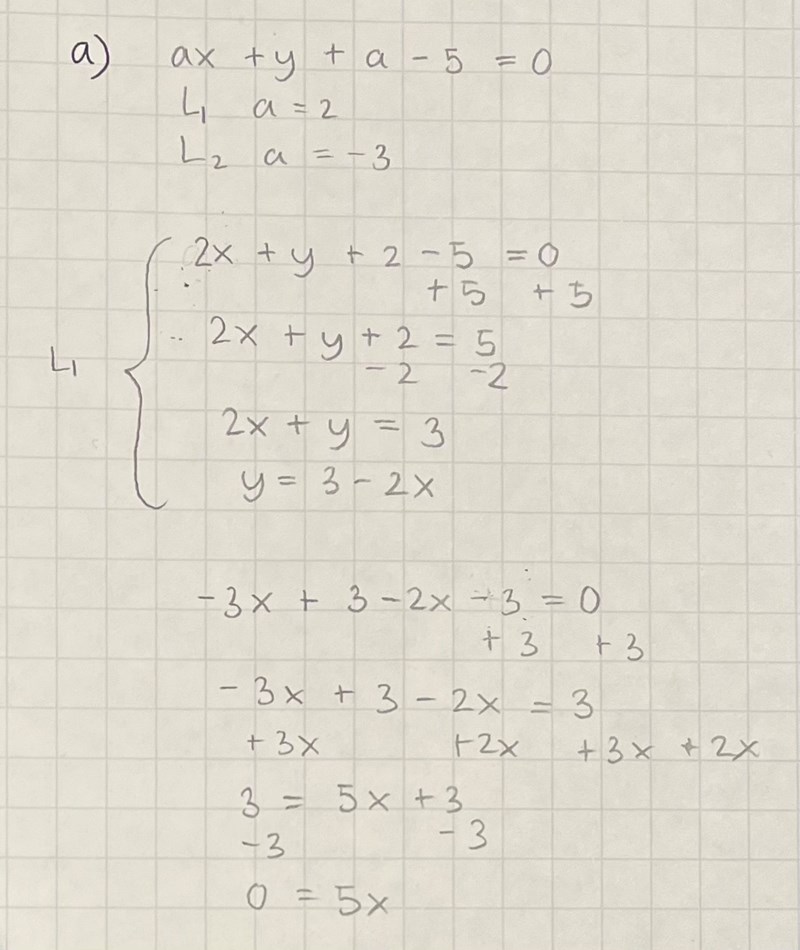 a) ax + y + a - 5 = 0
L1 a = 2
L2 a = -3
2x + y + 2 - 5 = 0
+ 5 + 5
2x + y + 2 = 5
- 2 -2
L1
2x + y = 3
y = 3 - 2x
-3x + 3 - 2x - 3 = 0
+ 3 + 3
- 3x + 3 - 2x = 3
+3x +2x +3x + 2x
3 = 5x + 3
-3 -3
0 = 5x